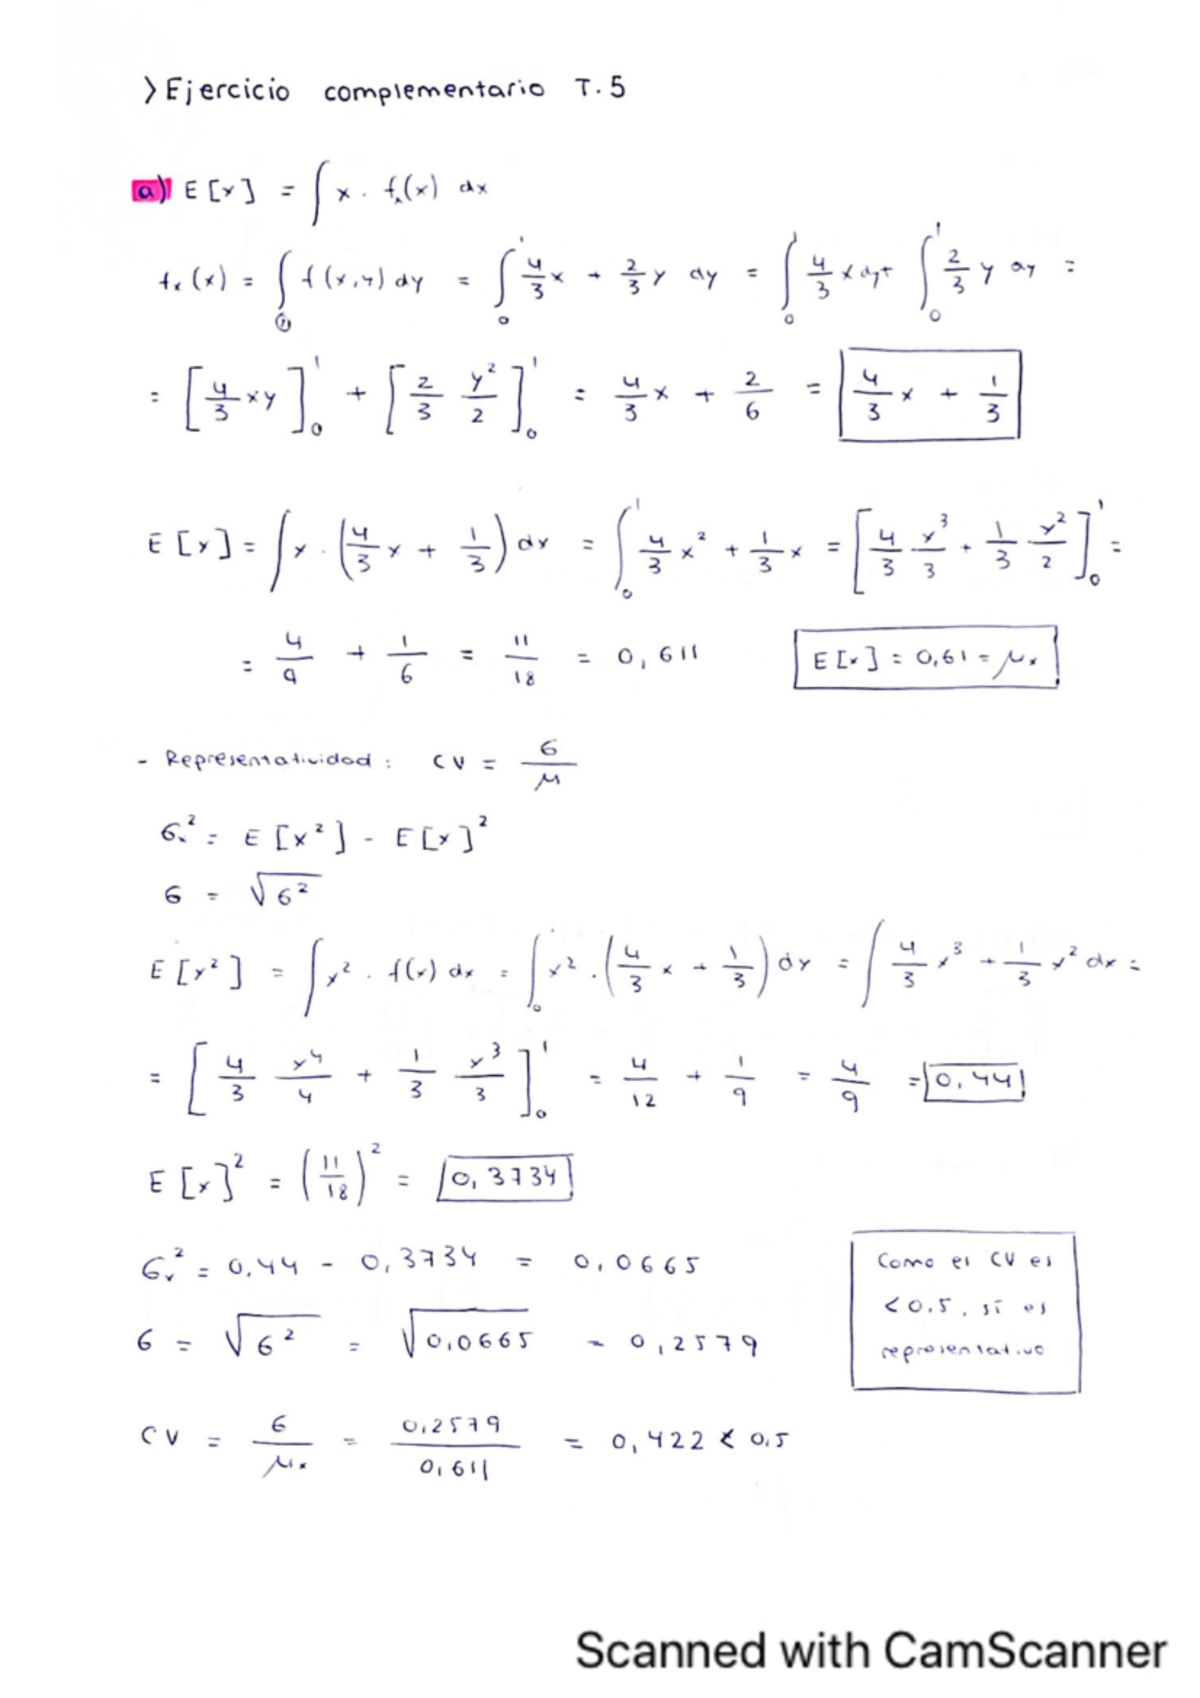 > Ejercicio complementario T.5
a) E[x] = ∫ x · fₓ(x) dx
fₓ(x) = ∫ f(x,y) dy = ∫₀¹ 4/3 x + 2/3 y dy = ∫₀¹ 4/3 x dy + ∫₀¹ 2/3 y dy =
= [4/3 xy]₀¹ + [2/3 y²/2]₀¹ = 4/3 x + 2/6 = 4/3 x + 1/3
E[x] = ∫ x · (4/3 x + 1/3) dx = ∫₀¹ 4/3 x² + 1/3 x = [4/3 x³/3 + 1/3 x²/2]₀¹ =
= 4/9 + 1/6 = 11/18 = 0,611 E[x] = 0,61 = μₓ
- Representatividad: CV = σ/μ
σₓ² = E[x²] - E[x]²
σ = √σ²
E[x²] = ∫ x² · f(x) dx = ∫₀¹ x² · (4/3 x + 1/3) dx = ∫ 4/3 x³ + 1/3 x² dx =
= [4/3 x⁴/4 + 1/3 x³/3]₀¹ = 4/12 + 1/9 = 4/9 = 0,44
E[x]² = (11/18)² = 0,3734
σₓ² = 0,44 - 0,3734 = 0,0665
σ = √σ² = √0,0665 = 0,2579
Como el CV es
<0.5, sí es
representativo
CV = σ/μₓ = 0,2579/0,611 = 0,422 < 0,5
Scanned with CamScanner